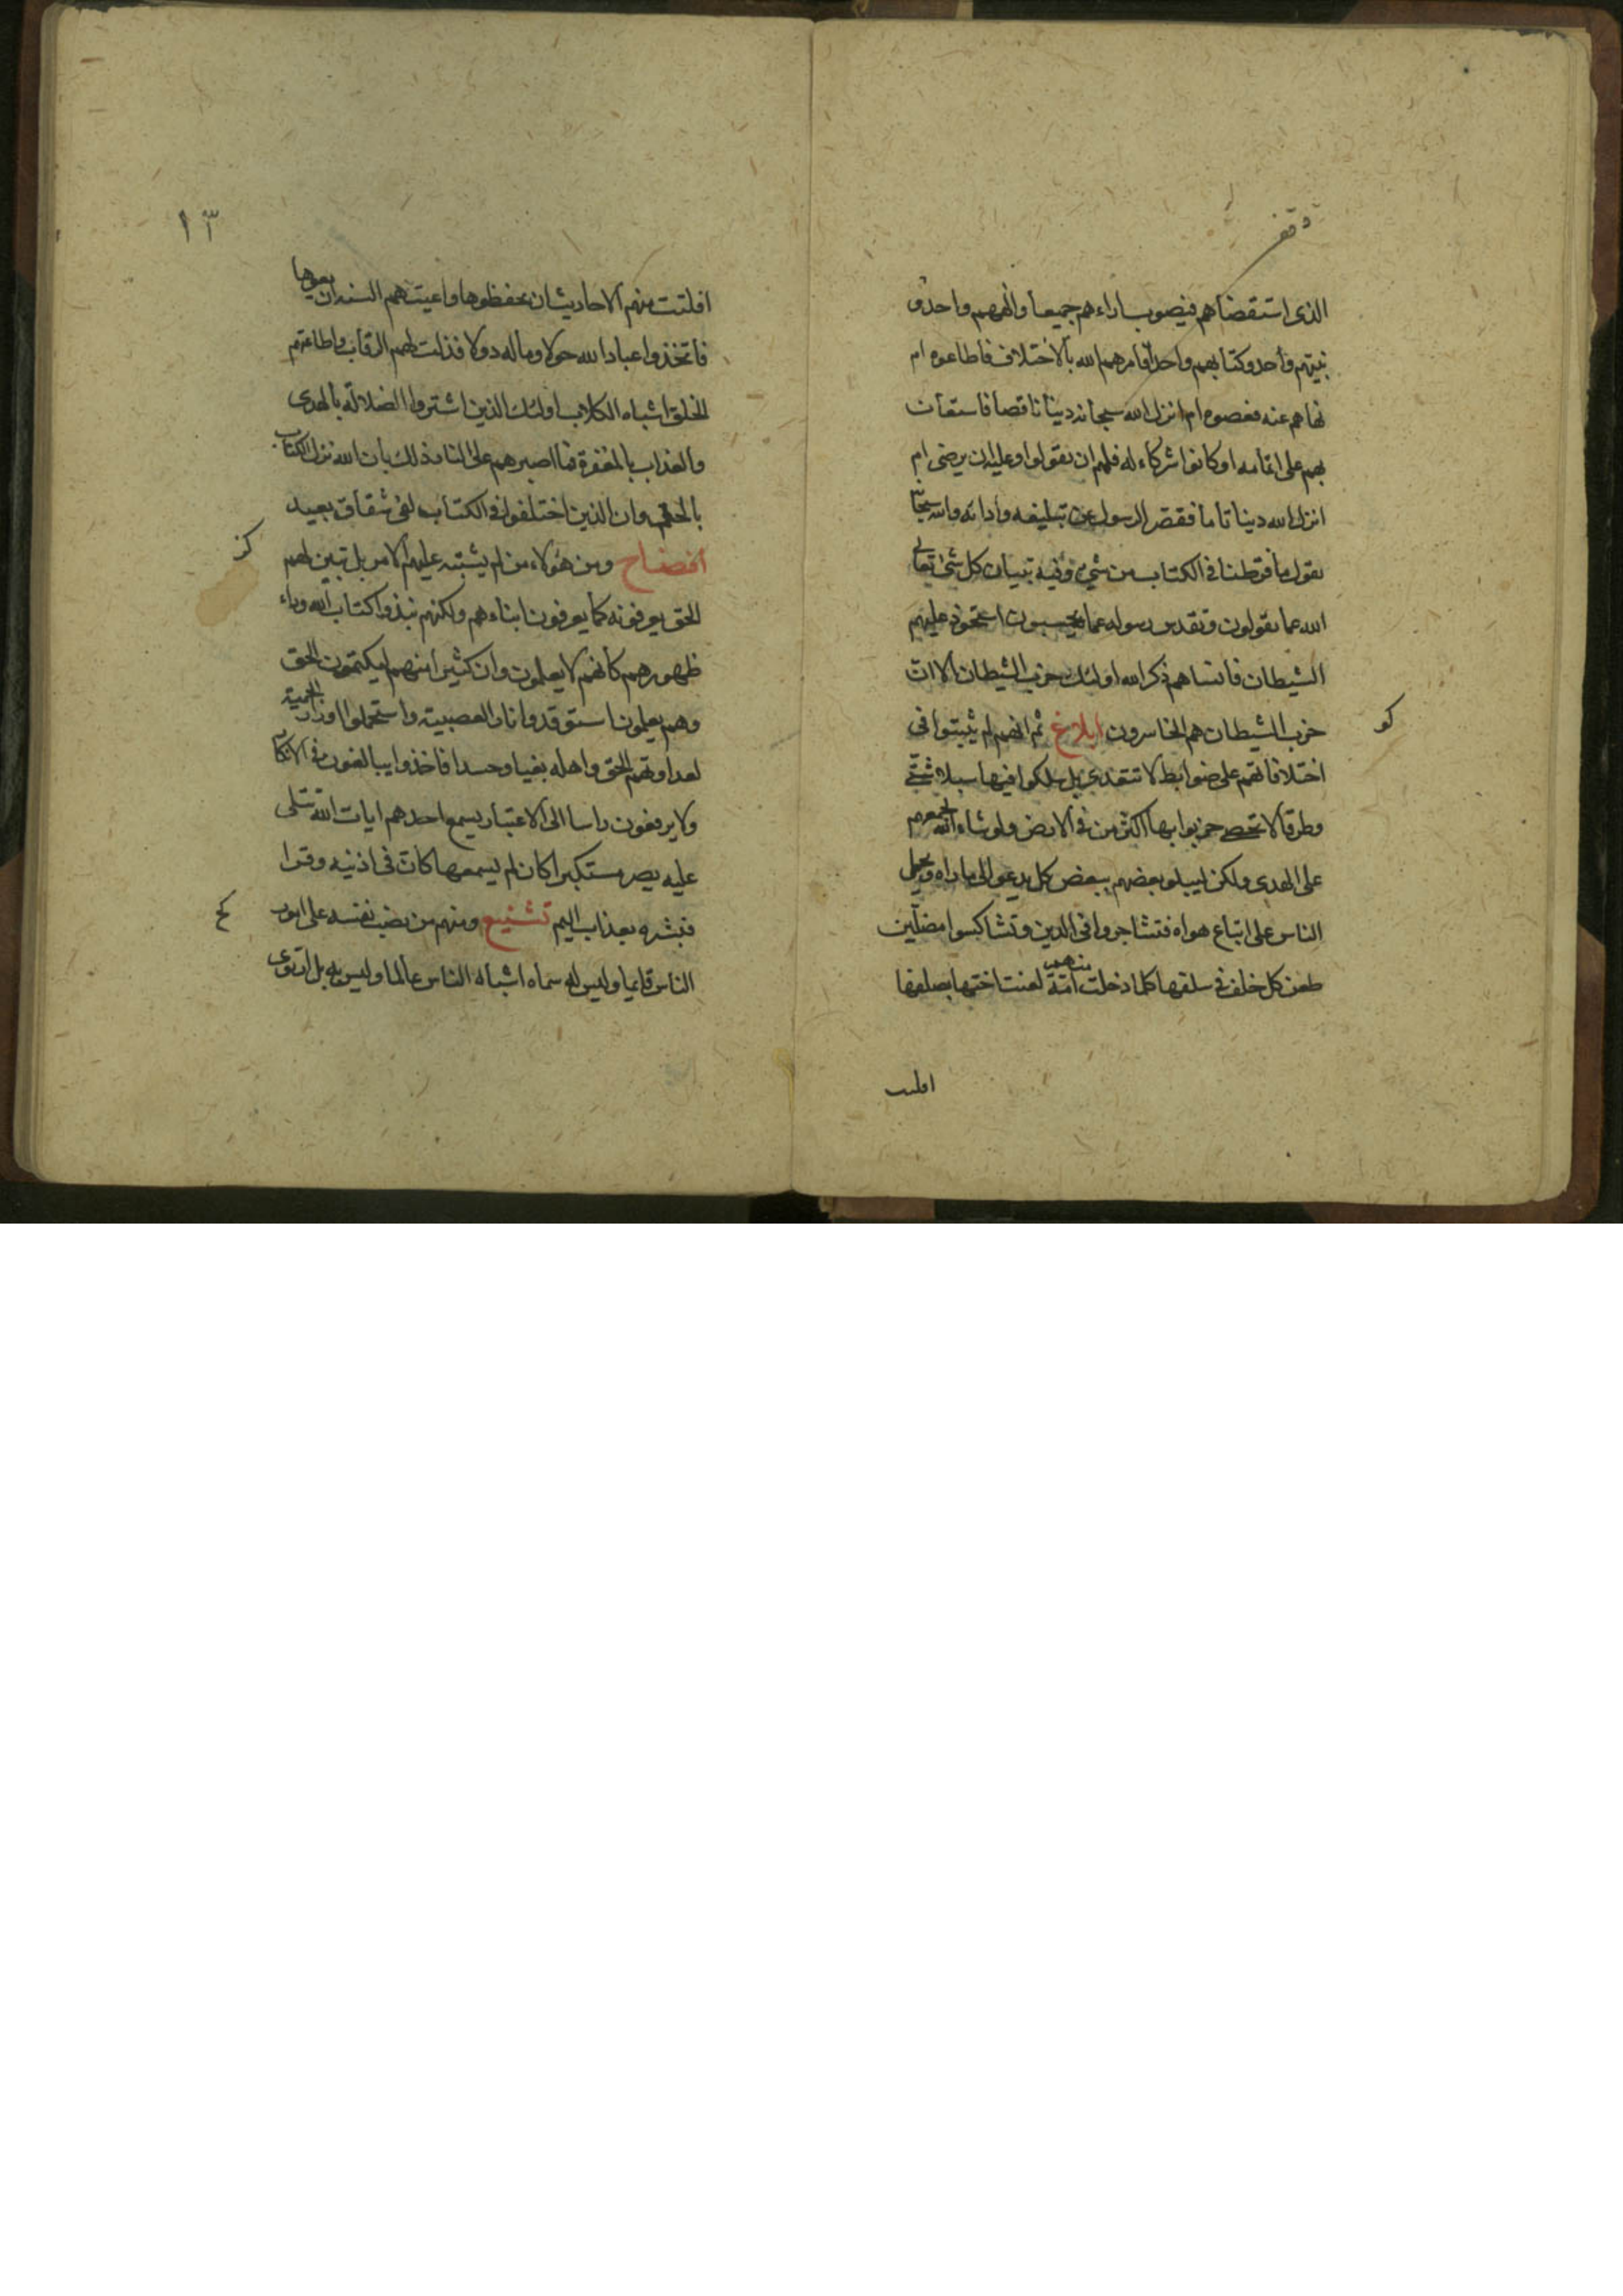 وقف
الذى استقضاهم فيصوب اراءهم جميعا والههم واحد و
نبيهم واحد وكتابهم واحد افامرهم الله بالاختلاف فاطاعوه ام
نهاهم عنه فعصوه ام انزل الله سبحانه دينا ناقصا فاستعان
بهم على اتمامه او كانوا شركاء له فلهم ان يقولوا وعليه ان يرضى ام
انزل الله دينا تاما فقصر الرسول عن تبليغه وادائه والله سبحانه
يقول ما فرطنا فى الكتاب من شئ وفيه تبيان كل شئ تعالى
الله عما يقولون وتقدس رسوله عما يحسبون استحوذ عليهم
الشيطان فانساهم ذكر الله اولئك حزب الشيطان الا ان
حزب الشيطان هم الخاسرون ابلاغ ثم انهم لم يثبتوا فى
كو
اختلافاتهم على ضوابط لا تتعدى بل سلكوا فيها سبلا شتى
وطرقا لا تحصى حزبوا بها اكثر من فى الارض ولو شاء الله لجمعهم
على الهدى ولكن ليبلو بعضهم ببعض كل يدعو الى ما راه ويحمل
الناس على اتباع هواه فتشاجروا فى الدين وتشاكسوا مضلين
طعن كل خلف فى سلفها كلما دخلت امة منهم لعنت اختها بصلفها
افلتت
١٣
افلتت منهم الاحاديث ان يحفظوها واعيتهم السنة ان يعوها
فاتخذوا عباد الله خولا وماله دولا فذلت لهم الرقاب واطاعتهم
الخلق اشباه الكلاب اولئك الذين اشتروا الضلالة بالهدى
والعذاب بالمغفرة فما اصبرهم على النار ذلك بان الله نزل الكتاب
بالحق وان الذين اختلفوا فى الكتاب لفى شقاق بعيد
افضاح ومن هؤلاء من لم يشتبه عليهم الامر بل تبين لهم
كز
الحق يعرفونه كما يعرفون ابناءهم ولكنهم نبذوا كتاب الله وراء
ظهورهم كانهم لا يعلمون وان كثيرا منهم ليكتمون الحق
وهم يعلمون استوقدوا نار العصبية واستحملوا اوزار الحمية
لعداوتهم الحق واهله بغيا وحسدا فاخذوا يبالغون فى الانكار
ولا يرفعون راسا الى الاعتبار يسمع احدهم ايات الله تتلى
عليه يصر مستكبرا كان لم يسمعها كان فى اذنيه وقرا
فبشره بعذاب اليم تشنيع ومنهم من نصب نفسه على ابواب
كح
الناس قاضيا وليس له سماه اشباه الناس عالما وليس به بل ارتوى